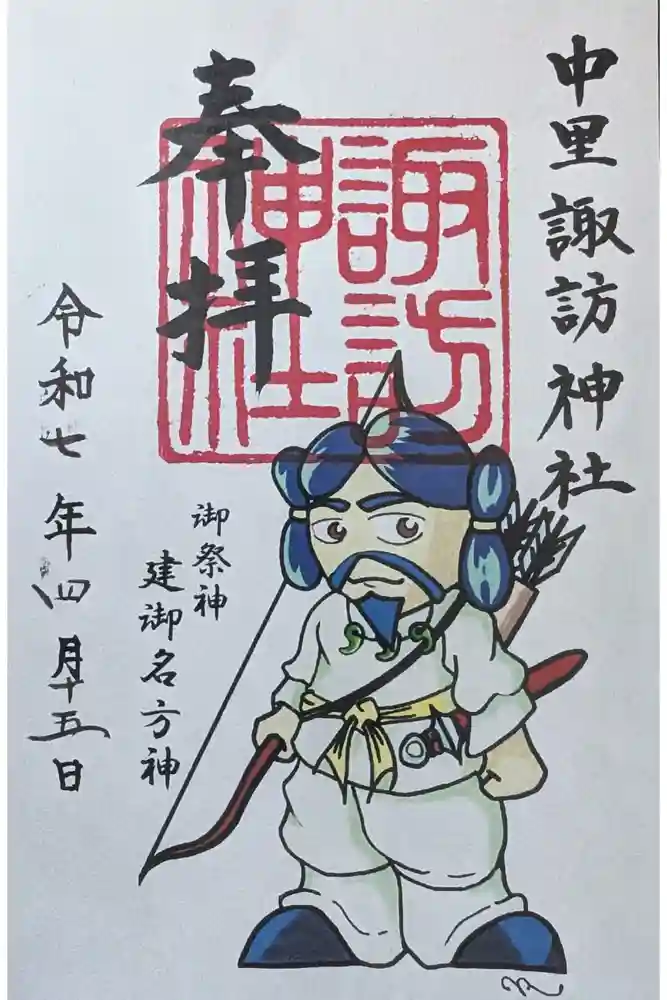 中里諏訪神社
奉拝
諏訪
神社
御祭神
建御名方神
令和七年四月十五日